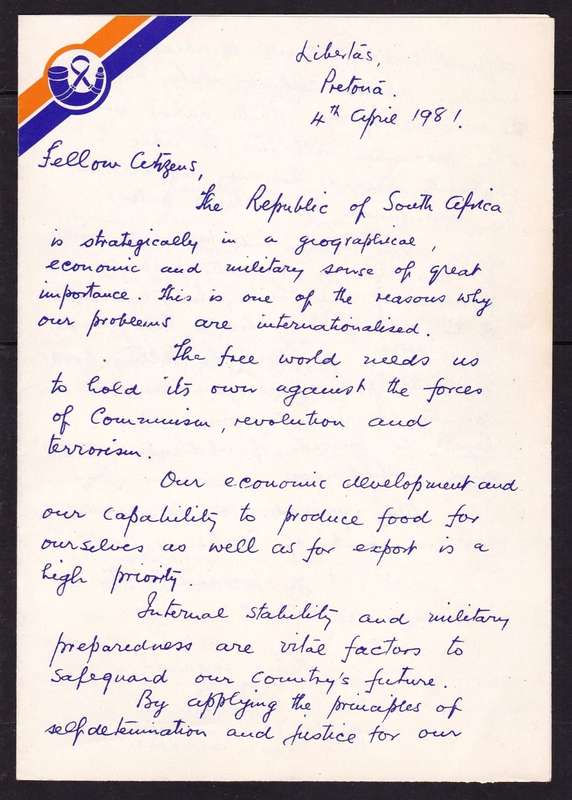 Libertas,
Pretoria.
4th April 1981.
Fellow Citizens,
The Republic of South Africa
is strategically in a geographical,
economic and military sense of great
importance. This is one of the reasons why
our problems are internationalised.
The free world needs us
to hold its own against the forces
of Communism, revolution and
terrorism.
Our economic development and
our capability to produce food for
ourselves as well as for export is a
high priority.
Internal stability and military
preparedness are vital factors to
safeguard our country's future.
By applying the principles of
selfdetermination and justice for our